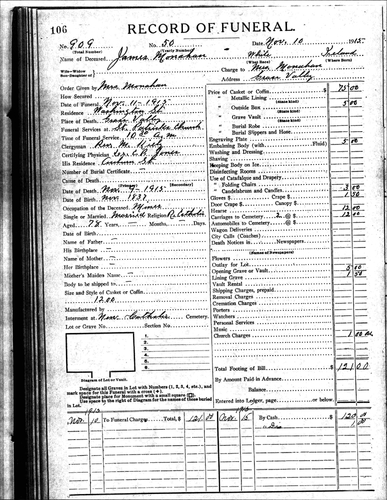 106
RECORD OF FUNERAL.
No. 909 No. 50 Date, Nov. 10 1915
(Total Number) (Yearly Number)
Name of Deceased, James Monahan White Ireland
(What Race) (Where Born)
Wife—Widow
Son-Daughter of
Charge to Mrs Monahan
Address Grass Valley
Order Given by Mrs Monahan
How Secured
Date of Funeral, Nov. 11 - 1915
Residence Washington
Place of Death, Grass Valley
Funeral Services at St. Patricks Church
Time of Funeral Service, 10 A.M.
Clergyman,
Certifying Physician Jones
His Residence
Number of Burial Certificate,
Cause of Death,
(Primary) (Secondary)
Date of Death Nov. 9 - 1915
Date of Birth Nov. 1837
Occupation of the Deceased, Miner
Single or Married, Married Religion R. Catholic
Aged 78 Years Months, Days.
Date of Birth,
Name of Father,
His Birthplace
Name of Mother,
Her Birthplace
Mother's Maiden Name
Body to be shipped to
Size and Style of Casket or Coffin,
Manufactured by
Interment at New Catholic Cemetery.
Lot or Grave No. Section No.
1
2
3
4
5
6
Diagram of Lot or Vault.
Designate all Graves in Lot with Numbers (1, 2, 3, 4, etc.), and
mark space for this Funeral with a cross (+).
Designate place for Monument with a small square (□).
Use space by the right of Diagram for the names of those buried
in Lot.
Price of Casket or Coffin, 75 00
" Metallic Lining
(State kind)
" Outside Box 5 00
(State kind)
" Grave Vault
(State kind)
" Burial Robe
(State kind)
" Burial Slippers and Hose
Engraving Plate 5 00
Embalming Body (with Fluid)
Washing and Dressing
Shaving
Keeping Body on Ice
Disinfecting Rooms
Use of Catafalque and Drapery
" Folding Chairs 3 00
" Candelabrum and Candles 1 50
Gloves $ Crape $
Door Crape $ Canopy $
Hearse 12 00
Carriages to Cemetery 2 @ $ 12 00
Automobiles to Cemetery @ $
Wagon Deliveries
City Calls (Coaches)
Death Notices in Newspapers
(Names of Newspapers)
Flowers
Outlay for Lot
Opening Grave or Vault 5 00
Lining Grave 1 50
Vault Rental
Shipping Charges, prepaid
Removal Charges
Cremation Charges
Porters
Watchers
Personal Services
Music
Church Charges 1 00
Total Footing of Bill 121 00
By Amount Paid in Advance
Balance
Entered into Ledger, page or below.
1915
Nov. 10 To Funeral Charges 121 00 Nov. 15 By Cash 120 00
" Dis 1 00